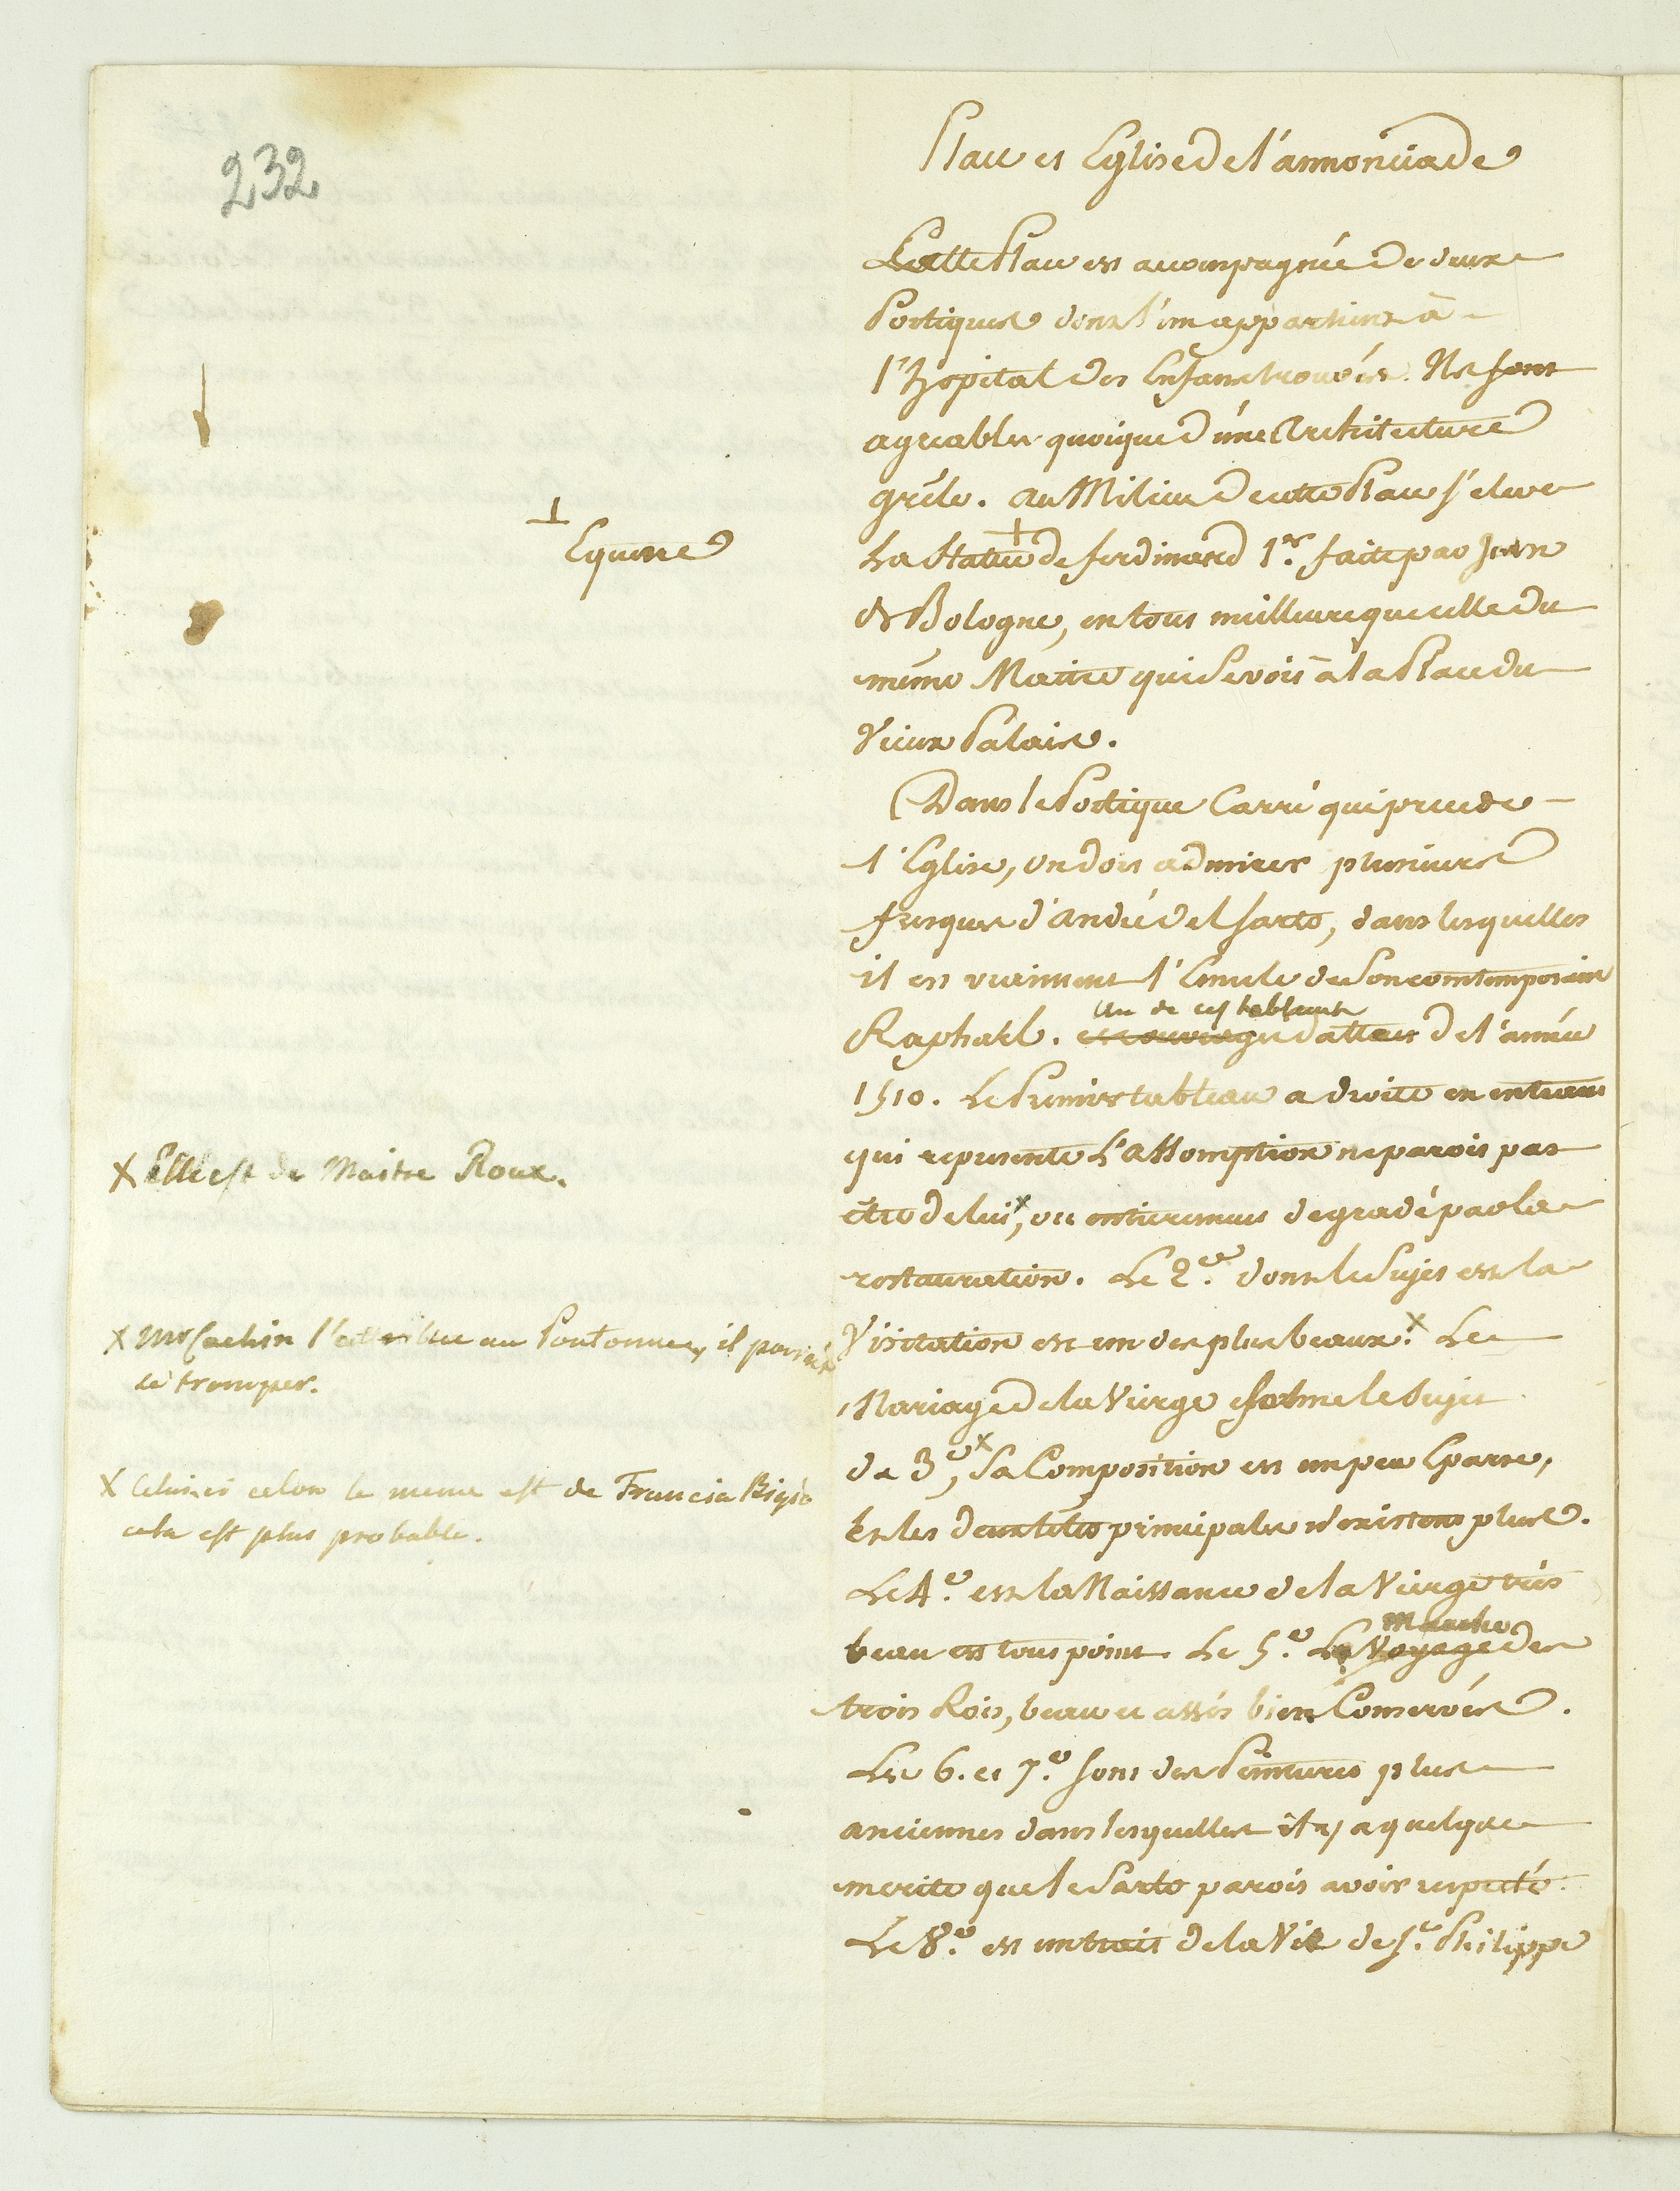 232
Place et Eglise de l'annonciade
Cette Place est accompagnée de deux
Portiques dont l'un appartient à
l'hopital des Enfans trouvés. Ils sont
agreables quoique d'une Architecture
grêle. au Milieu de cette Place s'eleve
⊥
Equestre
La Statue de ferdinand 1.er faite par Jean
de Bologne, en tout meilleure que celle du
même Maitre qui se voit à la Place du
Vieux Palais.
Dans le Portique Carré qui precede
l'Eglise, on doit admirer plusieurs
fresques d'andré del sarto, dans lesquelles
il est vraiment l'Emule de son comtemporain
Un de ces tableaux
Raphaël. datte de l'année
1510. Le Premier tableau a droite en entrant
qui represente L'assomption ne parois pas
X Elle est de Maitre Roux.
être de lui X, ou entierement degradé par la
restauration. Le 2.e dont le Sujet est la
X Mr Cochin l'attribue au Pontorme, il paroit
se tromper.
Visitation est un des plus beaux. X Le
Mariage de la Vierge forme le Sujet
X Celui ci celon le meme est de Francia Bigio
cela est plus probable.
de 3.e X, Sa Composition est un peu Eparse,
Et les deux têtes principales n'existent plus.
Le 4.e est la Naissance de la Vierge très
Marche
beau en tous point. Le 5.e La Voyage des
trois Rois, beau et assés bien Conservés.
Les 6. et 7.e sont des Peintures plus
anciennes dans lesquelles il y a quelque
merite que le Sarto parois avoir respecté.
Le 8.e est un trait de la Vie de S.t Philippe